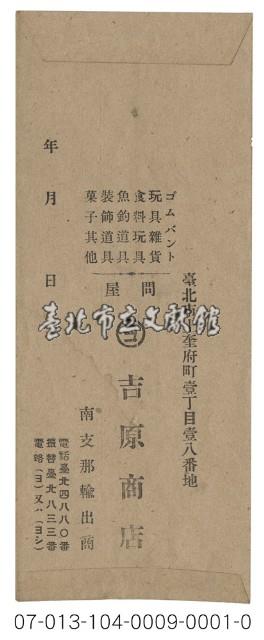 臺北市
奎府町壹丁目壹八番地
ゴムバンド
玩具雜貨
食料玩具
魚釣道具
裝飾道具
菓子其他
問屋
吉原商店
南支那輸出商
電話臺北四八八〇番
振替臺北八三三番
電略(ヨ)又ハ(ヨシ)
年 月 日
臺北市立文獻館
07-013-104-0009-0001-0